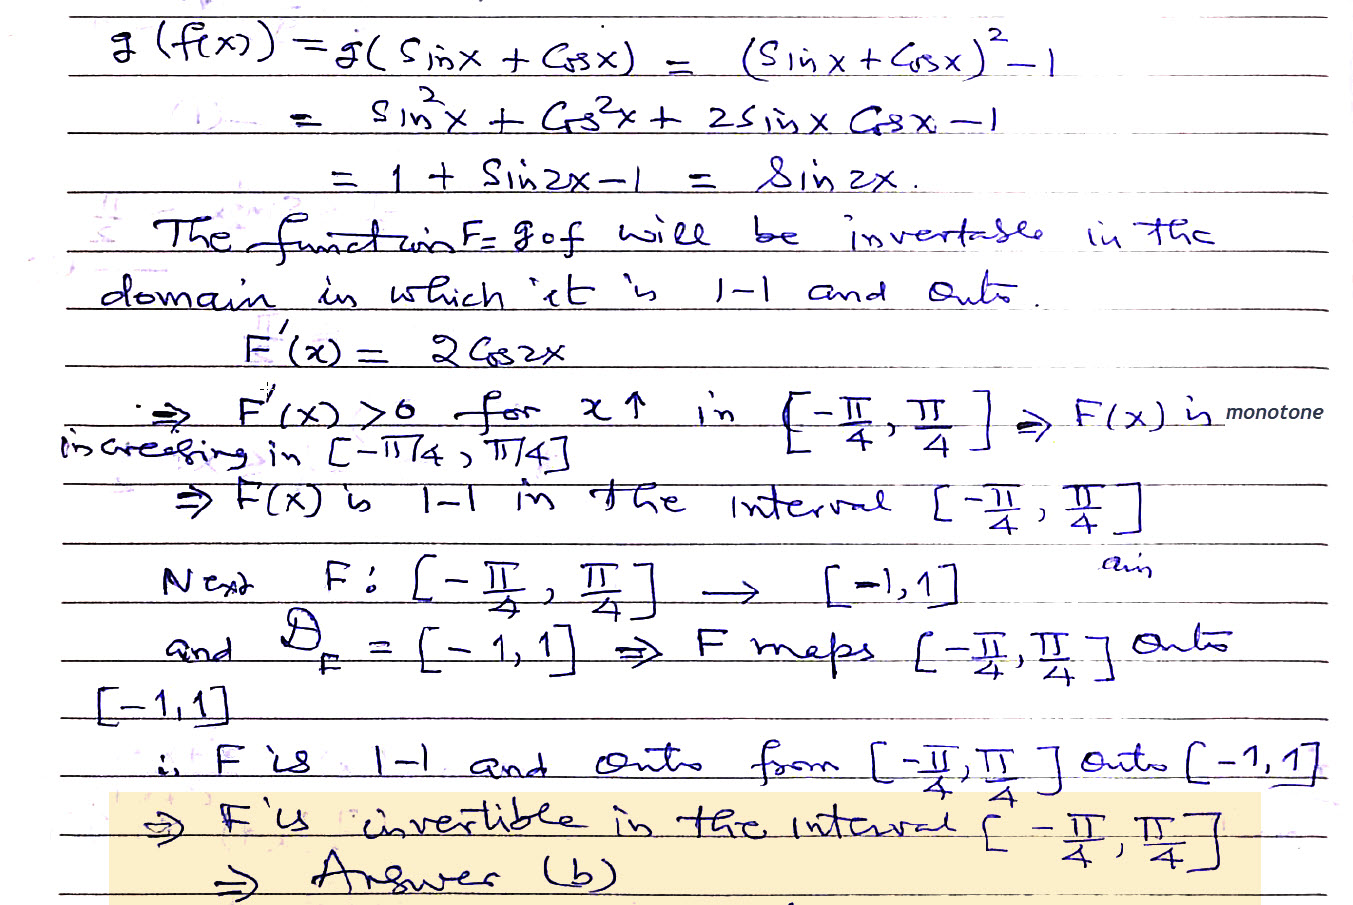 g(f(x)) = g(Sinx + Cosx) = (Sinx + Cosx)² - 1
= Sin²x + Cos²x + 2Sinx Cosx - 1
= 1 + Sin2x - 1 = Sin2x.
The function F = gof will be invertable in the
domain in which it is 1-1 and onto.
F'(x) = 2Cos2x
⇒ F'(x) > 0 for x ↑ in [-π/4, π/4] ⇒ F(x) is monotone
increasing in [-π/4, π/4]
⇒ F(x) is 1-1 in the interval [-π/4, π/4]
Next F: [-π/4, π/4] → [-1, 1]
and D_F = [-1, 1] ⇒ F maps [-π/4, π/4] onto
[-1, 1]
∴ F is 1-1 and onto from [-π/4, π/4] onto [-1, 1]
⇒ F is invertible in the interval [-π/4, π/4]
⇒ Answer (b)